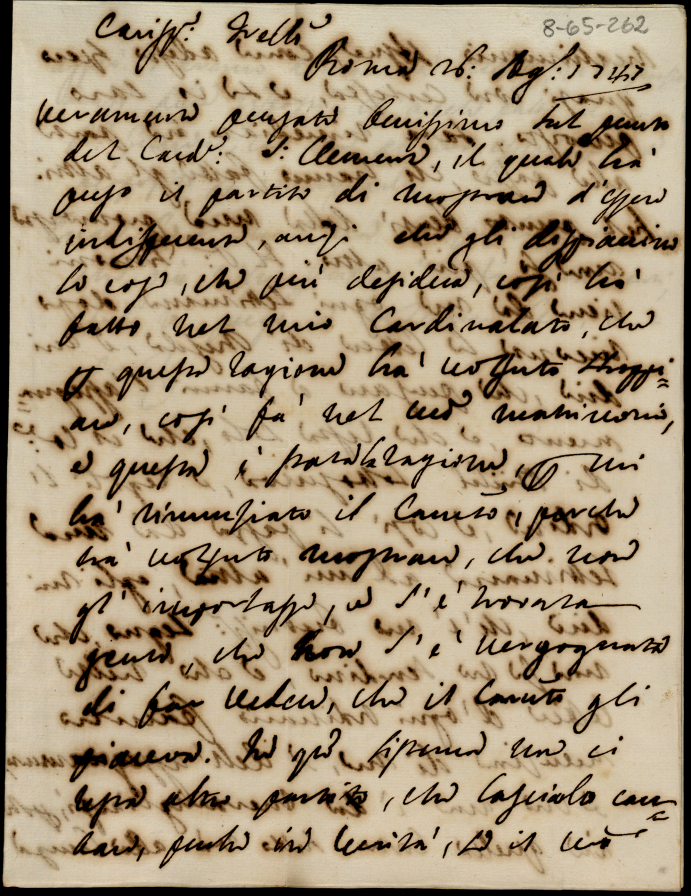 8-65-262
Cariss.º Frello
Roma 26: Ag.: 1747
veramente pensato benissimo sul punto
del Card.: S: Clemente, il quale hà
preso il partito di mostrare d'essere
indifferente, anzi che gli dispiacino
le cose, che più desidera, così hà
fatto nel mio Cardinalato, che
questa ragione hà voluto
così fà nel mio
e questa è stata la ragione, mi
hà rinunziato il perche
hà voluto mostrare, che non
gl' importasse, e s' è trovata
gente, che non s' è vergognata
di far vedere, che il gli
piaceva. non ci
resta altro partito, che lasciarlo can=
tare, perche in verità, se il